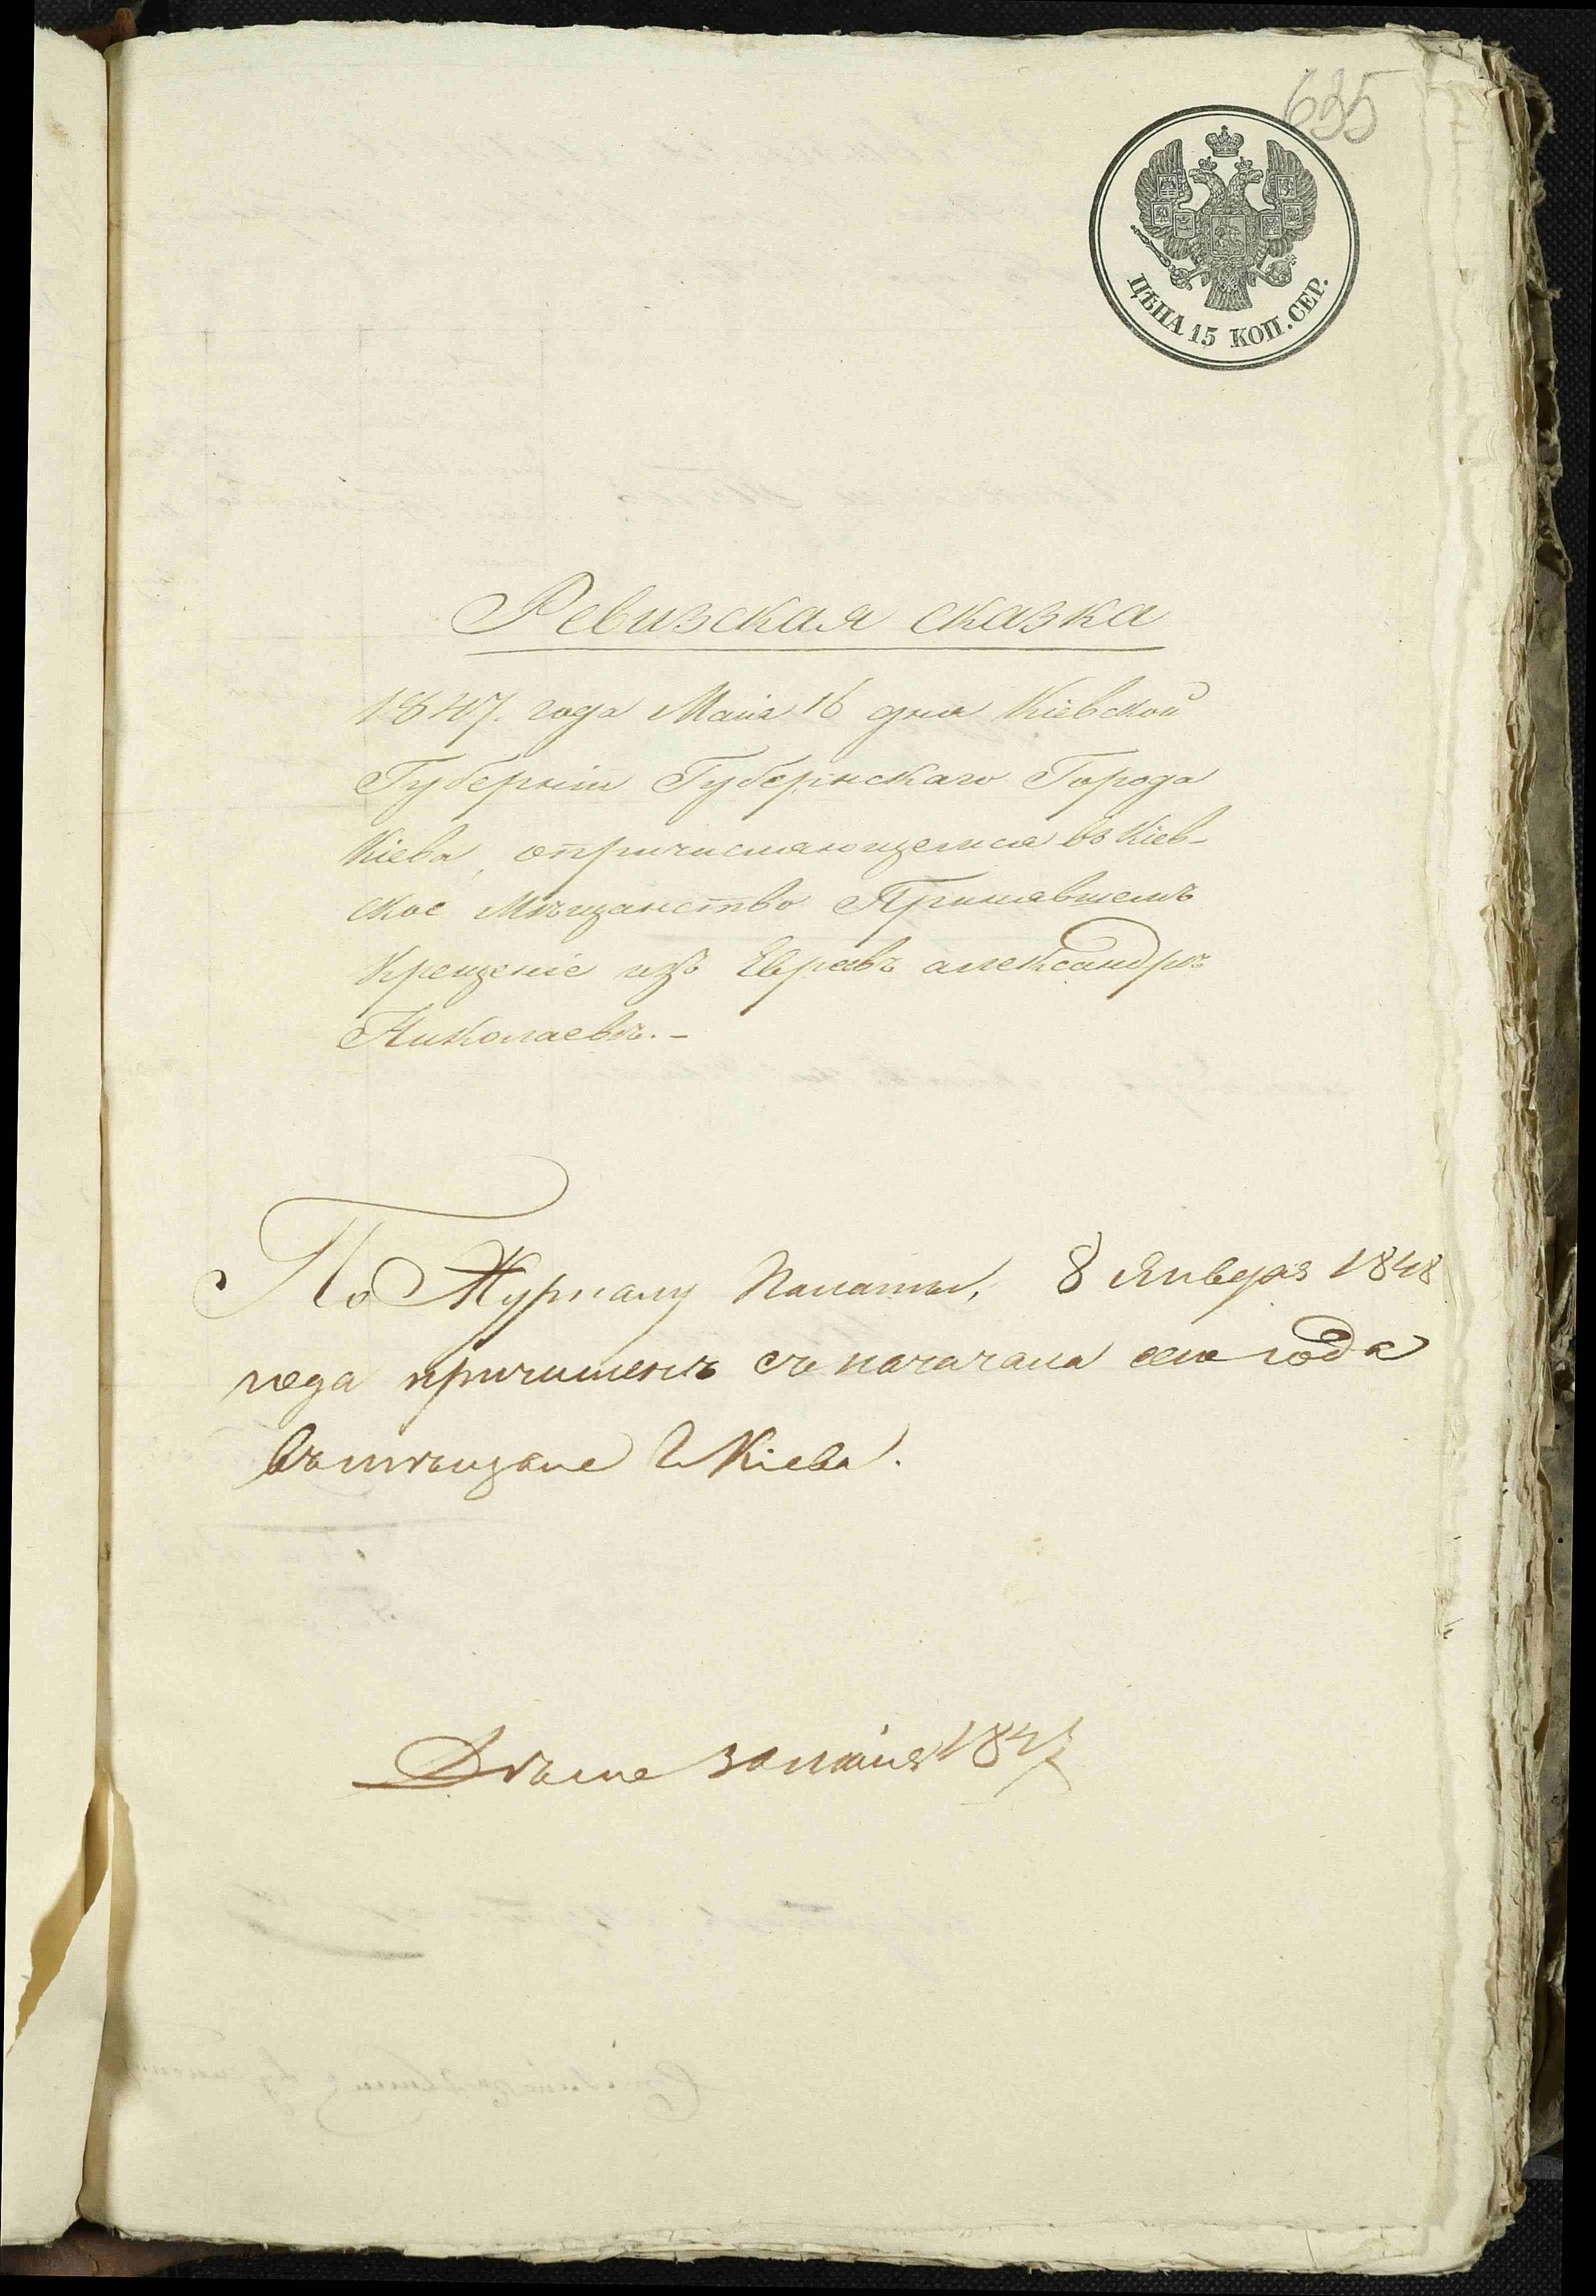 635
ЦѢНА 15 КОП. СЕР.
Ревизская сказка
1847. года Маія 16 дня Кіевской
Губерніи Губернскаго Города
Кіева, опричисляющемся въ Кіев-
ское Мѣщанство Принявшемъ
Крещеніе изъ Евреевъ александрѣ
Николаевѣ.-
По Журналу Палаты, 8 Января 1848
года причисленъ съ началa сего года
въ мѣщане г Кіева.
1847